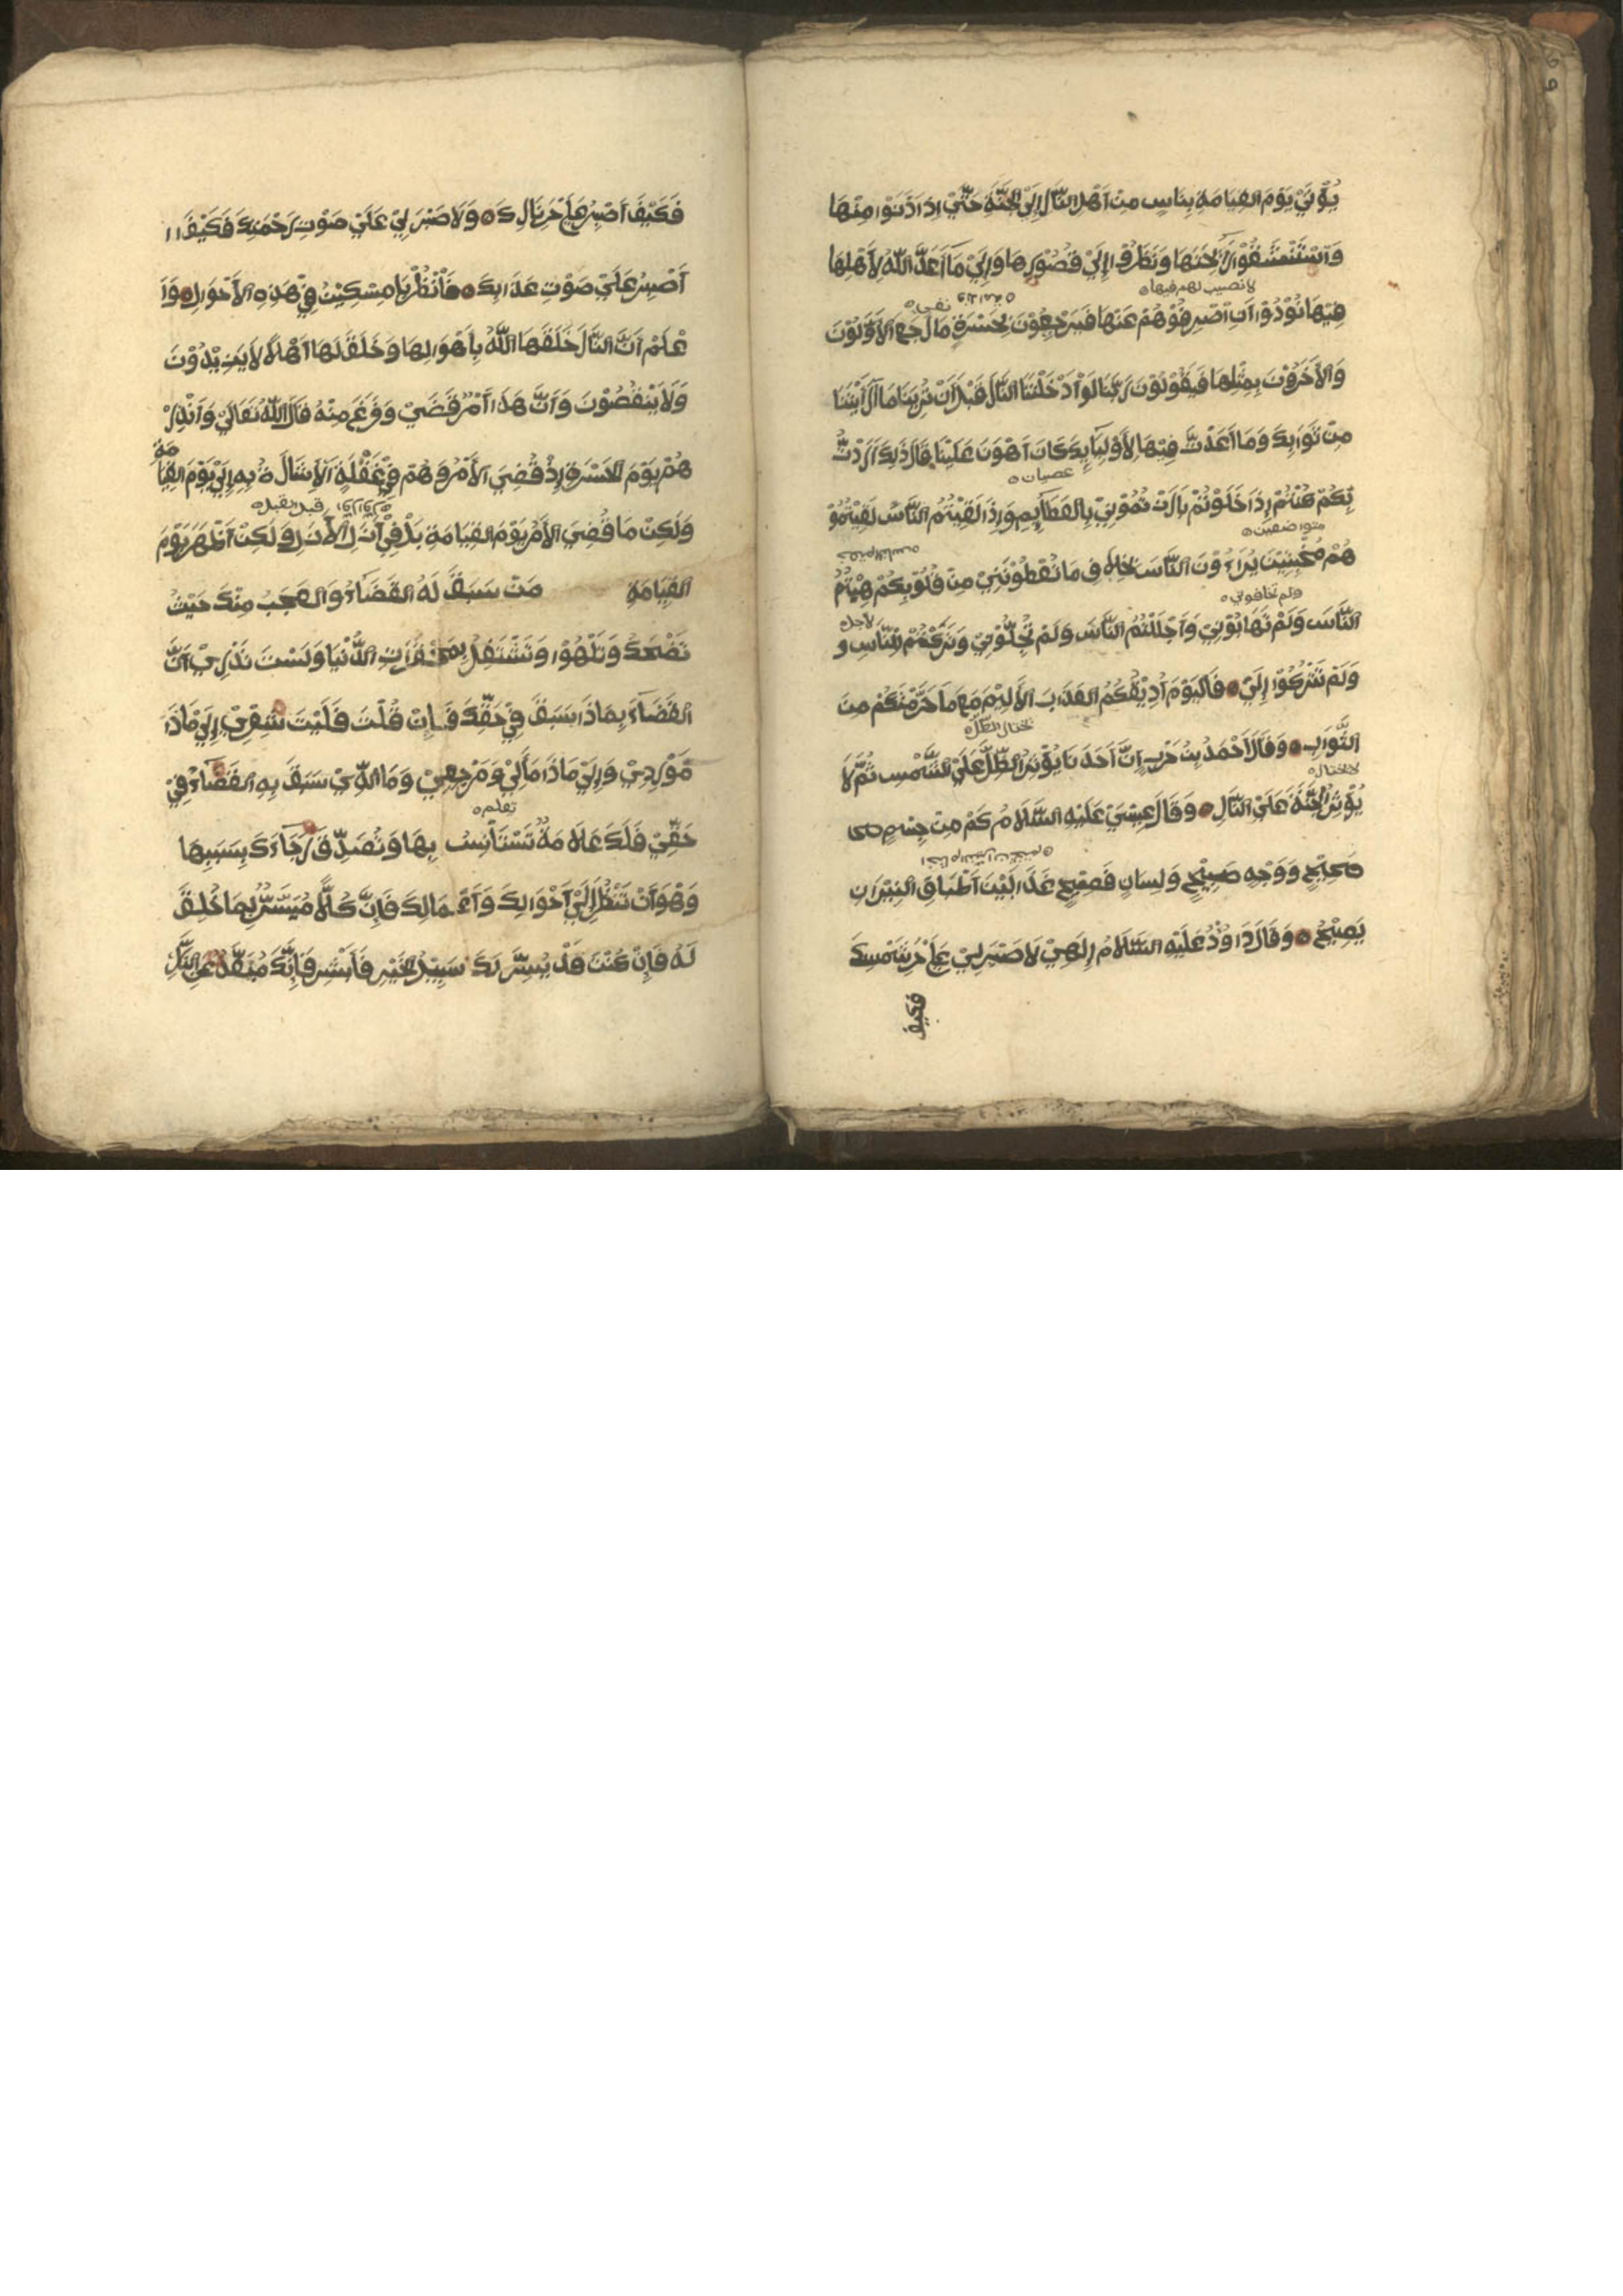 يُؤْتَيْ يَوْمَ القِيَامَةِ بِنَاسٍ مِنْ اَهْلِ النَّارِ اِلَي الجَنَّةِ حَتَّيْ اِذَا دَنَوْا مِنْهَا
وَاسْتَنْشَقُوْا رَائِحَتَهَا وَنَظَرُوْا اِلَيْ قُصُوْرِهَا وَاِلَيْ مَا اَعَدَّ اللّٰهُ لِاَهْلِهَا
لا نصيب لهم فيها
فِيْهَا نُوْدُوْا اَنِ اصْرِفُوْهُمْ عَنْهَا فَيَرْجِعُوْنَ بِحَسْرَةٍ مَا رَجَعَ الاَوَّلُوْنَ
وَالاَخَرُوْنَ بِمِثْلِهَا فَيَقُوْلُوْنَ رَبَّنَا لَوْ اَدْخَلْتَنَا النَّارَ قَبْلَ اَنْ تُرِيَنَا مَا اَرَيْتَنَا
مِنْ ثَوَابِكَ وَمَا اَعْدَدْتَّ فِيْهَا لِاَوْلِيَآئِكَ كَانَ اَهْوَنَ عَلَيْنَا قَالَ ذَلِكَ اَرَدْتُّ
عصيان
بِكُمْ كُنْتُمْ اِذَا خَلَوْتُمْ بَارَزْتُمُوْنِيْ بِالعَظَآئِمِ وَاِذَا لَقِيْتُمُ النَّاسَ لَقِيْتُمُوْ
متواضعين
هُمْ مُخْبِتِيْنَ يُرَاءُوْنَ النَّاسَ بِخِلَافِ مَا تُعْطُوْنَنِيْ مِنْ قُلُوْبِكُمْ هِبْتُمُ
ولم تخافوني
النَّاسَ وَلَمْ تَهَابُوْنِيْ وَاَجْلَلْتُمُ النَّاسَ وَلَمْ تُجِلُّوْنِيْ وَتَرَكْتُمْ لِلنَّاسِ وَ
لاجل
وَلَمْ تَتْرُكُوْا اِلَيَّ فَاليَوْمَ اُذِيْقُكُمُ العَذَابَ الاَلِيْمَ مَعَ مَا حَرَّمْتُكُمْ مِنَ
الثَّوَابِ وَقَالَ اَحْمَدُ بْنُ حَرْبٍ اِنَّ اَحَدَنَا يُؤْثِرُ الظِّلَّ عَلَيْ الشَّمْسِ ثُمَّ لَا
لا تختار
يُؤْثِرُ الجَنَّةَ عَلَيْ النَّارِ وَقَالَ عِيْسَيْ عَلَيْهِ السَّلَامُ كَمْ مِنْ جِسْمٍ
صَحِيْحٍ وَوَجْهٍ صَبِيْحٍ وَلِسَانٍ فَصِيْحٍ غَدًا بَيْنَ اَطْبَاقِ النِيْرَانِ
يَصِيْحُ وَقَالَ دَاوُدُ عَلَيْهِ السَّلَامُ اِلَهِيْ لَا صَبْرَ لِيْ عَلَيْ حَرِّ شَمْسِكَ
فكيف
فَكَيْفَ اَصْبِرُ عَلَيْ حَرِّ نَارِكَ وَلَا صَبْرَ لِيْ عَلَيْ صَوْتِ رَحْمَتِكَ فَكَيْفَ
اَصْبِرُ عَلَيْ صَوْتِ عَذَابِكَ فَانْظُرْ يَا مِسْكِيْنُ فِيْ هَذِهِ الاَحْوَالِ وَا
عْلَمْ اَنَّ النَّارَ خَلَقَهَا اللّٰهُ بِاَهْوَالِهَا وَخَلَقَ لَهَا اَهْلًا لَا يَزِيْدُوْنَ
وَلَا يَنْقُصُوْنَ وَاَنَّ هَذَا اَمْرٌ قُضِيَ وَفُرِغَ مِنْهُ قَالَ اللّٰهُ تَعَالَيْ وَاَنْذِرْ
هُمْ يَوْمَ الحَسْرَةِ اِذْ قُضِيَ الاَمْرُ وَهُمْ فِيْ غَفْلَةٍ اَلاِشَارَةُ بِهِ اِلَيْ يَوْمِ القِيَا
مَةِ
وَلَكِنْ مَا قُضِيَ الاَمْرُ يَوْمَ القِيَامَةِ بَلْ فِيْ اَزَلِ الاَزَلِ وَلَكِنْ اَظْهَرَ يَوْمَ
القِيَامَةِ مَنْ سَبَقَ لَهُ القَضَآءُ وَالعَجَبُ مِنْكَ حَيْثُ
تَضْحَكُ وَتَلْهُوْا وَتَشْتَغِلُ بِمُحَقَّرَاتِ الدُّنْيَا وَلَسْتَ تَدْرِيْ اَنَّ
القَضَآءَ بِمَاذَا سَبَقَ فِيْ حَقِّكَ فَاِنْ قُلْتَ فَلَيْتَ شِعْرِيْ اِلَيْ مَاذَا
مَوْرِدِيْ وَاِلَيْ مَاذَا مَأَلِيْ وَمَرْجِعِيْ وَمَا الَّذِيْ سَبَقَ بِهِ القَضَآءُ فِيْ
تعلم
حَقِّيْ فَلَكَ عَلَامَةٌ تَسْتَأْنِسُ بِهَا وَتُصَدِّقُ رَجَآءَكَ بِسَبَبِهَا
وَهُوَ اَنْ تَنْظُرَ اِلَيْ اَحْوَالِكَ وَاَعْمَالِكَ فَاِنَّ كُلًّا مُيَسَّرٌ لِمَا خُلِقَ
لَهُ فَاِنْ كُنْتَ قَدْ يُسِّرَ لَكَ سَبِيْلُ الخَيْرِ فَاَبْشِرْ فَاِنَّكَ مُبَعَّدٌ عَنِ النَّارِ